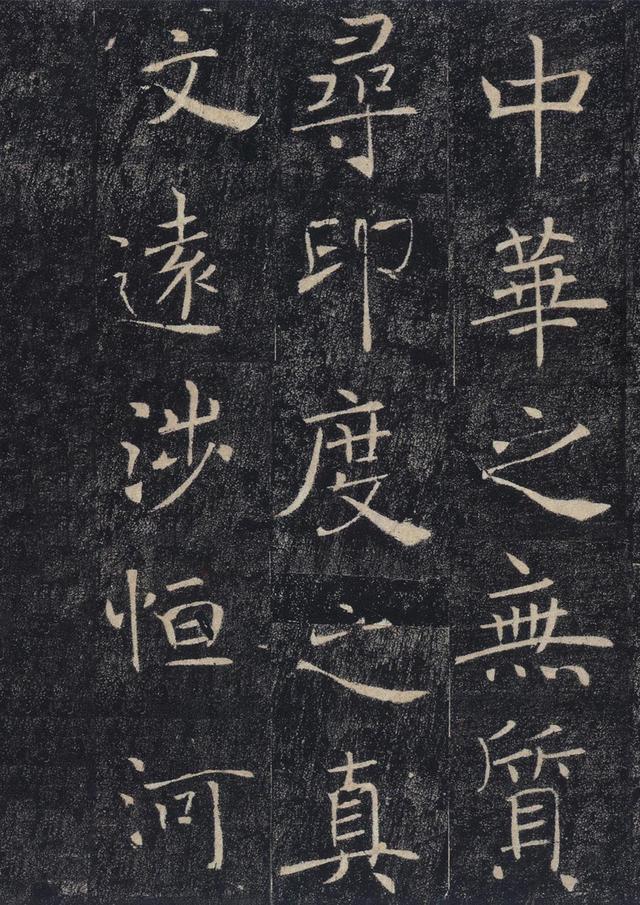 中華之無質
尋印度之真
文遠涉恒河